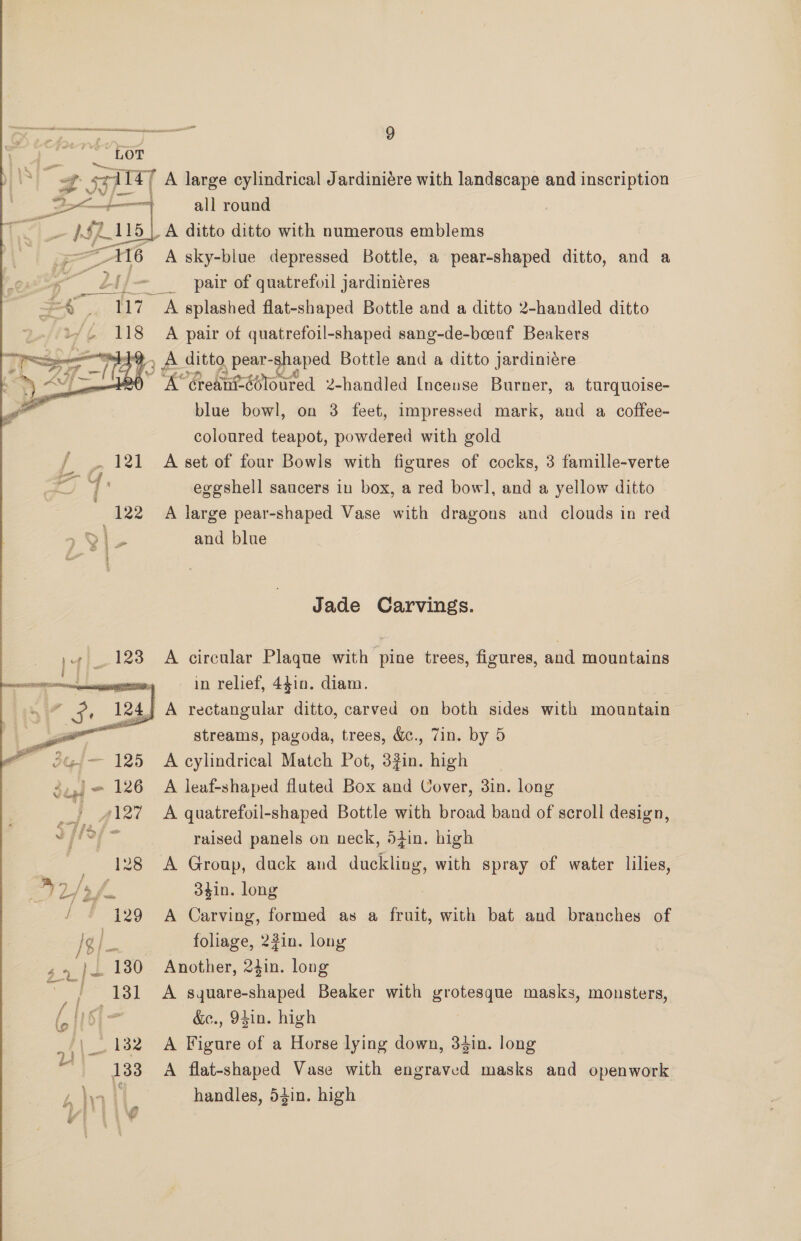 9
LOT
114 A large cylindrical Jardinière with landscape and inscription
all round
115 A ditto ditto with numerous emblems
116 A sky-blue depressed Bottle, a pear-shaped ditto, and a
pair of quatrefoil jardinières
117 A splashed flat-shaped Bottle and a ditto 2-handled ditto
118 A pair of quatrefoil-shaped sang-de-bœuf Beakers
119 A ditto pear-shaped Bottle and a ditto jardinière
120 A cream-coloured 2-handled Incense Burner, a turquoise-
blue bowl, on 3 feet, impressed mark, and a coffee-
coloured teapot, powdered with gold
121 A set of four Bowls with figures of cocks, 3 famille-verte
eggshell saucers in box, a red bowl, and a yellow ditto
122 A large pear-shaped Vase with dragons and clouds in red
and blue
Jade Carvings.
123 A circular Plaque with pine trees, figures, and mountains
in relief, 4½in. diam.
124 A rectangular ditto, carved on both sides with mountain
streams, pagoda, trees, &c., 7in. by 5
125 A cylindrical Match Pot, 3¾in. high
126 A leaf-shaped fluted Box and Cover, 3in. long
127 A quatrefoil-shaped Bottle with broad band of scroll design,
raised panels on neck, 5½in. high
128 A Group, duck and duckling, with spray of water lilies,
3½in. long
129 A Carving, formed as a fruit, with bat and branches of
foliage, 2¾in. long
130 Another, 2½in. long
131 A square-shaped Beaker with grotesque masks, monsters,
&c., 9½in. high
132 A Figure of a Horse lying down, 3½in. long
133 A flat-shaped Vase with engraved masks and openwork
handles, 5½in. high